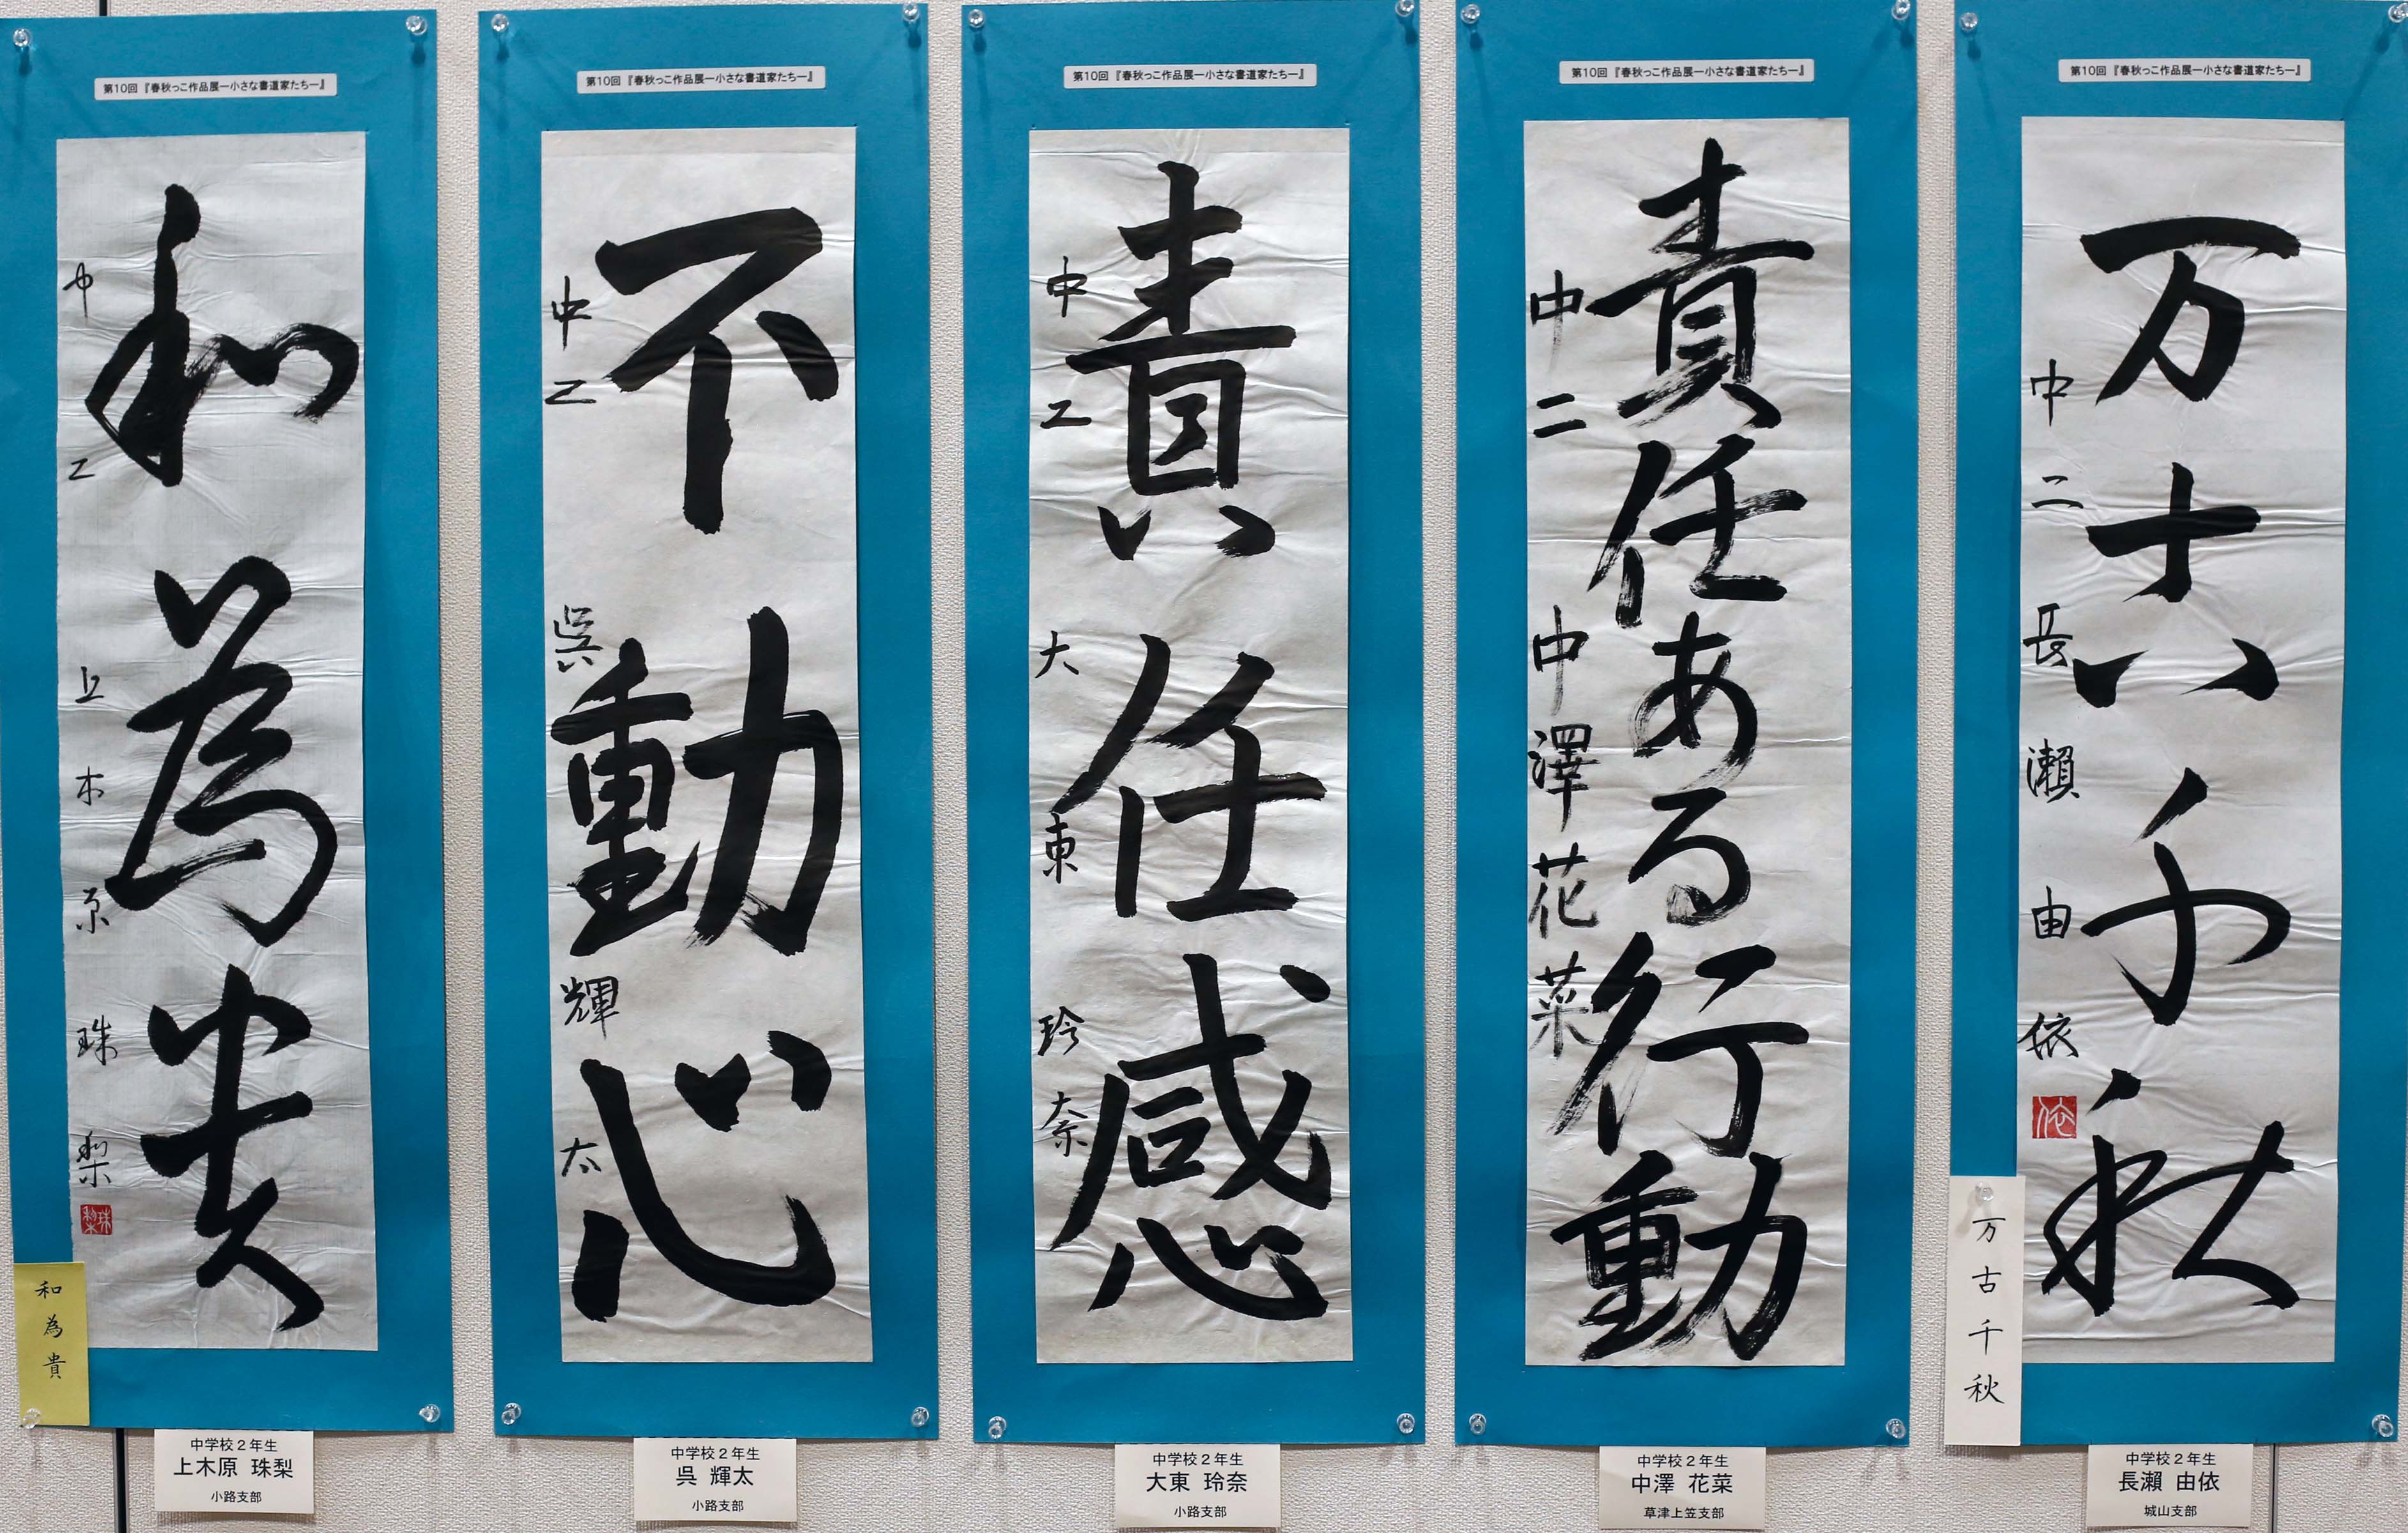 第10回『春秋っこ作品展ー小さな書道家たちー』
和為貴
中二 上木原珠梨
珠梨
和為貴
中学校2年生
上木原 珠梨
小路支部
第10回『春秋っこ作品展ー小さな書道家たちー』
不動心
中二 呉輝太
中学校2年生
呉 輝太
小路支部
第10回『春秋っこ作品展ー小さな書道家たちー』
責任感
中二 大東玲奈
中学校2年生
大東 玲奈
小路支部
第10回『春秋っこ作品展ー小さな書道家たちー』
責任ある行動
中二 中澤花菜
中学校2年生
中澤 花菜
草津上笠支部
第10回『春秋っこ作品展ー小さな書道家たちー』
万古千秋
中二 長瀬由依
依
万古千秋
中学校2年生
長瀬 由依
城山支部